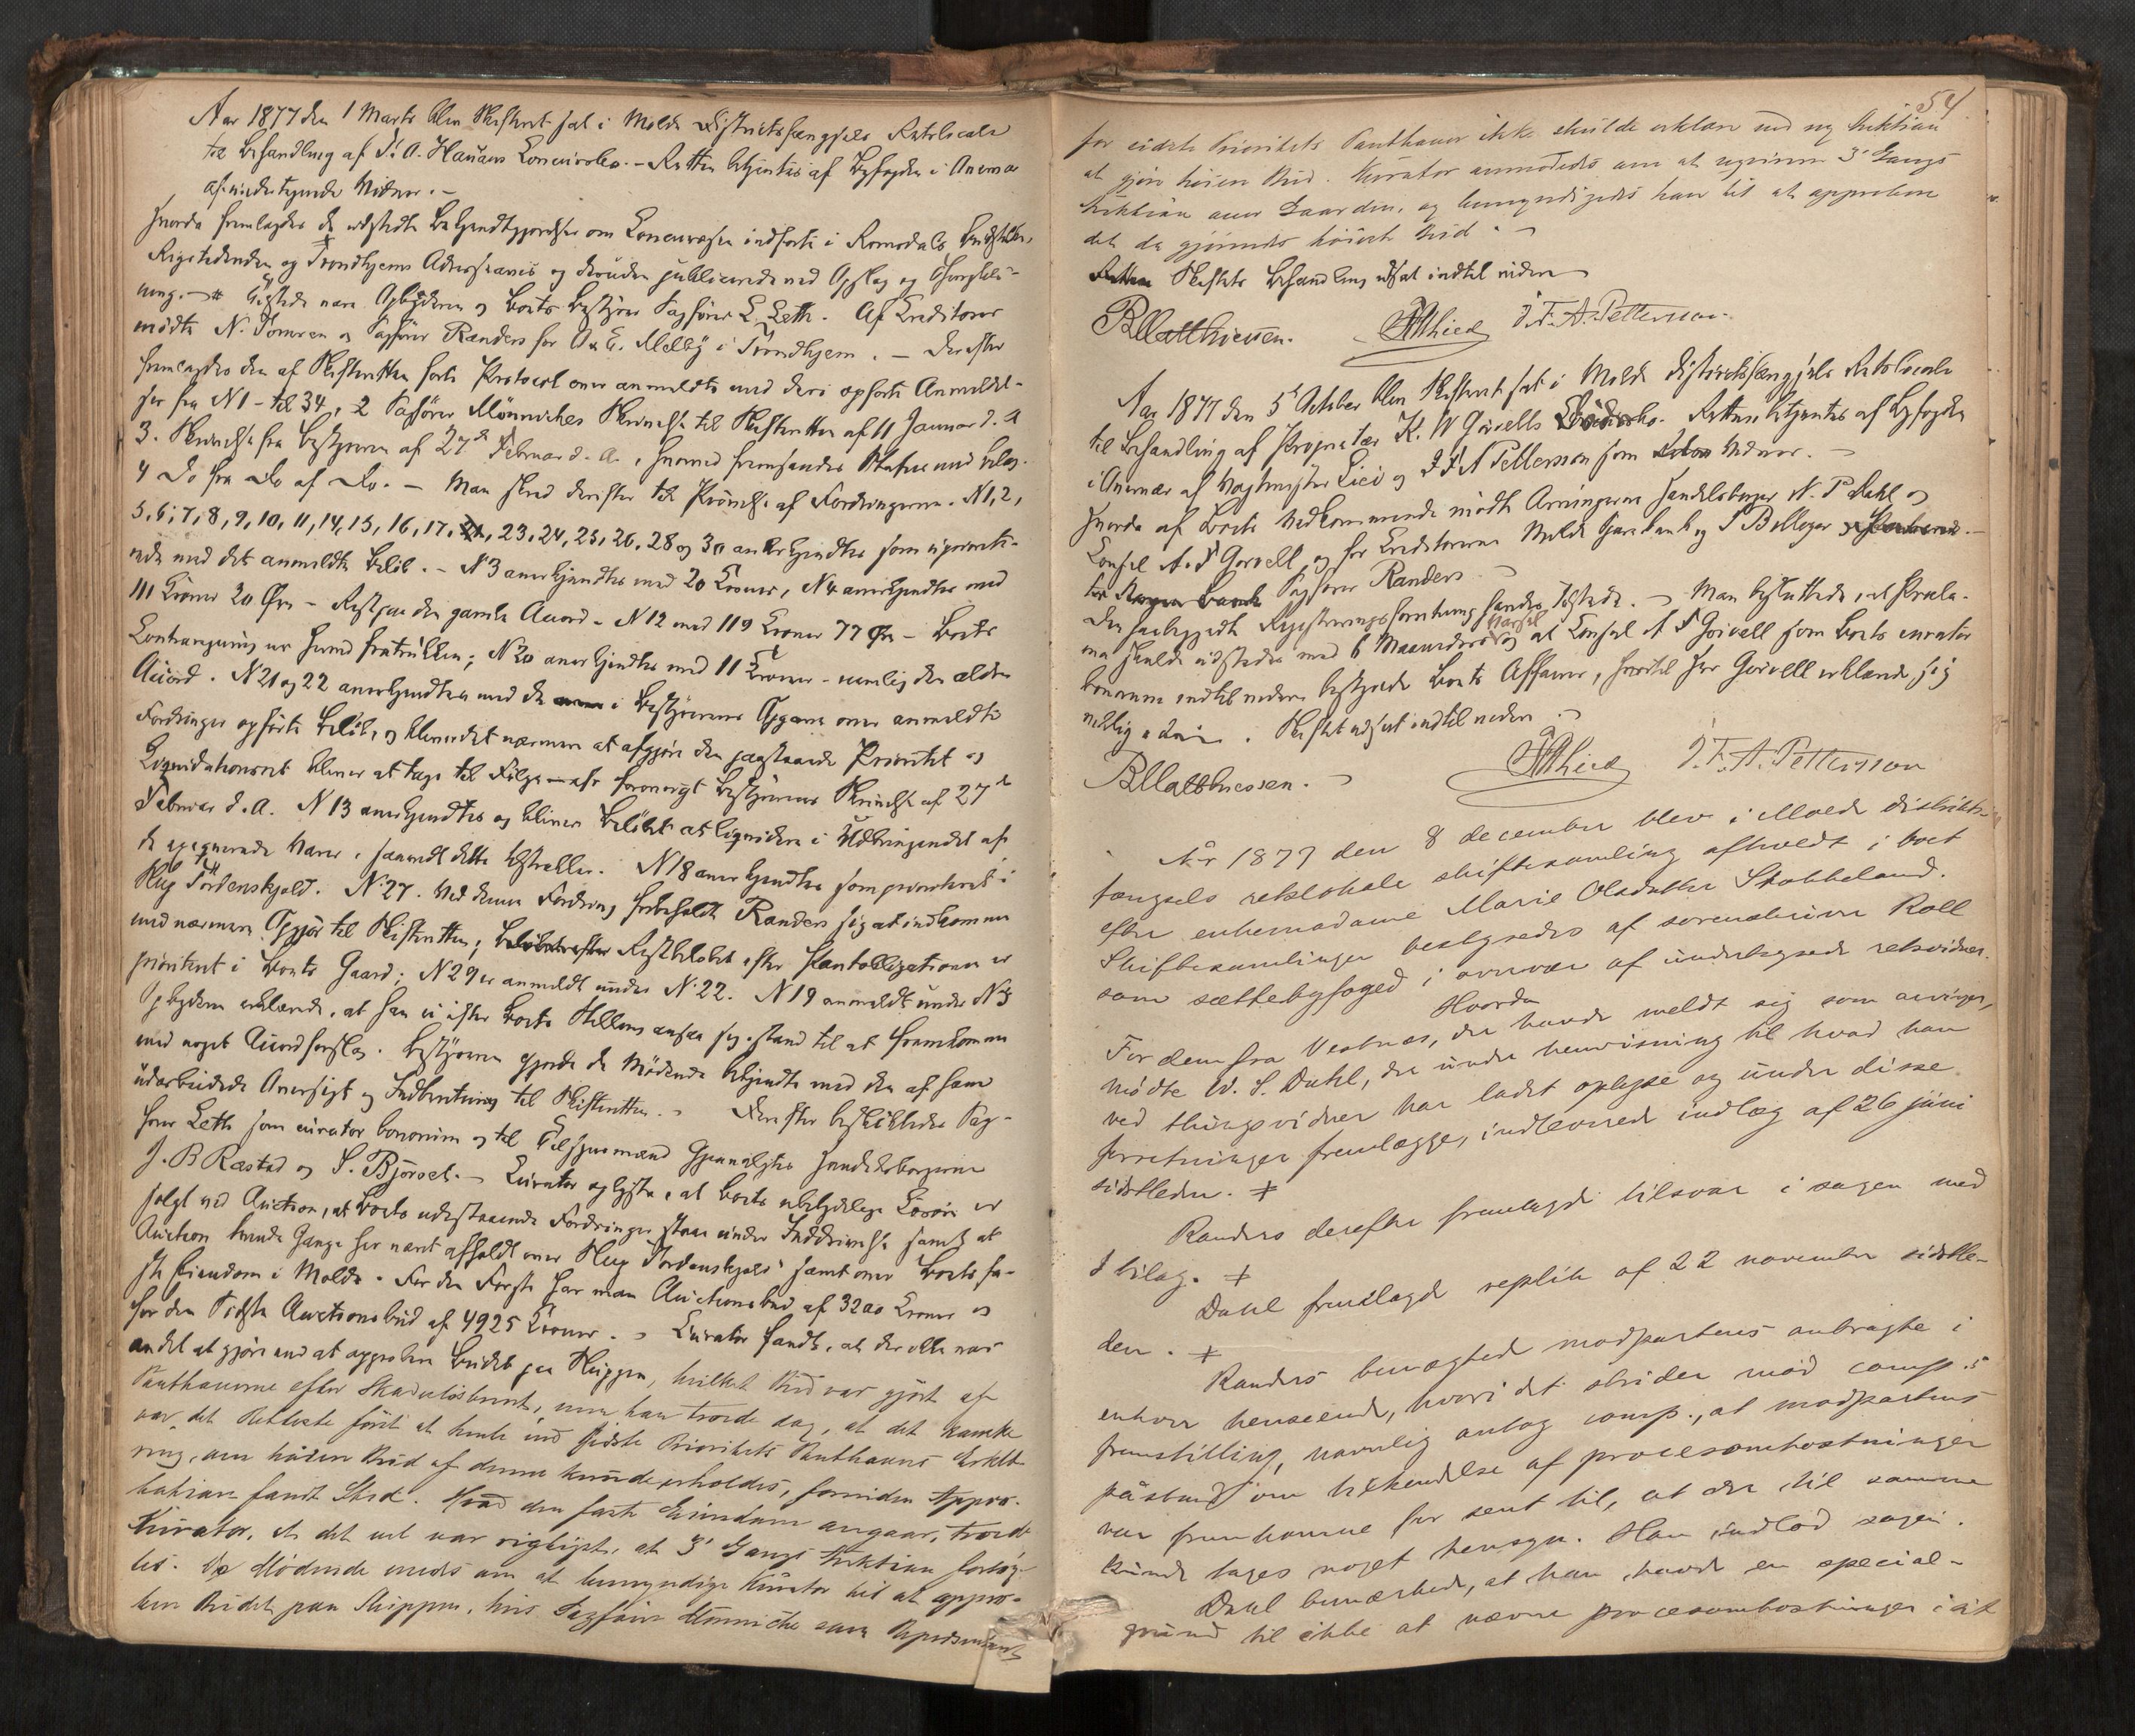 Aar 1877 den 1 Marts blev Skifteret sat i Molde Districtsfængsels Retslocale
til Behandling af P. A. Hanäus Concursbo. – Retten betjentes af Byfogden i Overvær
af undertegnede Vidner. –
Hvorda fremlagdes de udstedte Bekjendtgjørelser om Concursen indførte i Romsdals Budstikke,
Rigstidenden og Trondhjems Adresseavis og desuden publicerede ved Opslag og
ning. – Tilstede vare Opbyderen og Boets Bestyrer Sagfører L. Leth. Af Creditorer
mødte N. Tomren og Sagfører Randers for A & E. Melby i Trondhjem. – Derefter
fremlagdes den af Skifteretten førte Protocol over anmeldte med deri opførte Anmeldel-
ser fra N 1 – til 34, 2 Sagfører Mönniches Skrivelse til Skifteretten af 11 Januar d. A
3. Skrivelse fra Bestyreren af 27de Februar d. A., hvorved fremsendes Status med Bilag.
4 Do fra Do af Do. – Man skred derefter til Prøvelse af Fordringerne. N 1, 2,
5, 6, 7, 8, 9, 10, 11, 14, 15, 16, 17, 23, 24, 25, 26, 28 og 30 anerkjendtes som uprioriti-
rede med det anmeldte Beløb. – N 3 anerkjendtes med 20 Kroner, N 4 anerkjendtes med
111 Kroner 20 Øre – Rest paa den gamle Accord – N 12 med 119 Kroner 77 Øre – Boets
Contraregning er hermed fratrukken; N 20 anerkjendtes med 11 Kroner – nemlig den ældre
Accord. N 21 og 22 anerkjendtes med de i Bestyrerens Opgave over anmeldte
Fordringer opførte Beløb, og bliver det nærmere at afgjøre den paastaaede Prioritet og
Liqvidationsret bliver at tage til Følge – cfr forøvrigt Bestyrerens Skrivelse af 27de
Februar d. A. N 13 anerkjendtes og bliver Beløbet at liqvidere i Udbringendet af
de Varer, saavidt dette tilstrækker. N 18 anerkjendtes som prioriteret i
Skib Tordenskjold. N. 27. Ved denne Fordring forbeholdt Randers sig at indkomme
med nærmere Opgjør til Skifteretten; Restbeløbet efter Pantobligationen er
prioriteret i Boets Gaard; N 29 er anmeldt under N. 22. N 19 anmeldt under N 3
Opbyderen erklærede, at han ei efter Boets Stilling ansaa sig istand til at fremkomme
med noget Accordforslag. Bestyreren gjorde de Mødende bekjendte med den af ham
udarbeidede Oversigt og Indberetning til Skifteretten. – Derefter beskikkedes Sag-
fører Leth som curator bonorum og til Tilsynsmænd gjenvalgtes Handelsborgerne
J. B Ræstad og S. Bjørset. – Curator oplyste, at Boets ubetydelige Løsøre er
solgt ved Auction, at Boets udestaaende Fordringer staar under Inddrivelse samt at
Auction tvende Gange har været afholdt over Skib Tordenskjold samt over Boets fa-
ste Eiendom i Molde. For den Første har man Auctionsbud af 3200 Kroner og
for den Sidste Auctionsbud af 4925 Kroner. – Curator fandt, at der ikke var
andet at gjøre end at approbere Budet paa Skippen, hvilket Bud var gjort af
Panthaverne efter Skadesløsbrevet, men han troede dog, at det kanske
var det Retteste først at hente ind sidste Prioritets Panthavers Erklæ-
ring, om høiere Bud af denne kunde erholdes, forinden Appro-
bation fandt Sted. Hvad den faste Eiendom angaar, troede
Kurator, at det vel var rigtigst, at 3' Gangs Auktion forsøg-
tes. De Mødende enedes om at bemyndige Kurator til at appro-
bere Budet paa Skippen, hvis Sagfører Mönniche som
54
for sidste Prioritets Panthaver ikke skulde erklære ved ny Auktion
at gjøre høiere Bud. Kurator anmodedes om at reqvirere 3' Gangs
Auktion over Gaarden, og bemyndigedes han til at approbere
det da gjørendes høieste Bud. –
Skiftets Behandling udsat indtil videre
B Matthiessen. J. F. A. Petterson.
Aar 1877 den 5te October blev Skifteret sat i Molde Districtsfængsels Retslocale
til Behandling af Proprietær K. W Gørvells Retten betjentes af Byfogden
i Overvær af Vagtmester Lied og J. F. A Petterson som Vidner. –
Hvorda af Boets Vedkommende mødte Arvingerne Handelsborger N. P Dahl og
Consul A. P Gørvell, og for Creditorerne Molde Sparebank og P Bolleger
Sagfører Randers. –
Den foretagne Registreringsforretning fandtes tilstede. – Man besluttede, at Procla-
ma skulde udstedes med 6 Maaneders Varsel og at Consul A P Gørvell som Boets curator
bonorum indtil videre bestyrede Boets Affairer, hvortil Hr Gørvell erklærede sig
villig. Skiftet udsat indtil videre. –
B Matthiessen. – J. F. A. Petterson
År 1877 den 8 december blev i Molde distrikts-
fængsels retslokale skiftesamling afholdt i boet
efter enkemadame Marie Olsdatter Stokkeland.
Skiftesamlingen bestyredes af sorenskriver Roll
som sættebyfoged i overvær af undertegnede retsvidner.
Hvorda
For dem fra Vestnes, der havde meldt sig som arvinger,
mødte W. S. Dahl, der under henvisning til hvad han
ved thingsvidner har ladet oplyse og under disse
forretninger fremlægge, indleverede indlæg af 26 juni
sidstleden. ⌿
Randers derefter fremlagde tilsvar i sagen med
1 bilag. ⌿
Dahl fremlagde replik af 22 november sidstle-
den. ⌿
Randers benægted modpartens anbragte i
enhver henseende, hvori det strider mod comp.s
fremstilling, navnlig antog comp., at modpartens
påstand om tilkjendelse af procesomkostninger
var fremkomne for sent til, at der til samme
kunde tages noget hensyn. Han indlod sagen.
Dahl bemærkede, at han havde en special-
grund til ikke at nævne procesomkostninger i sit